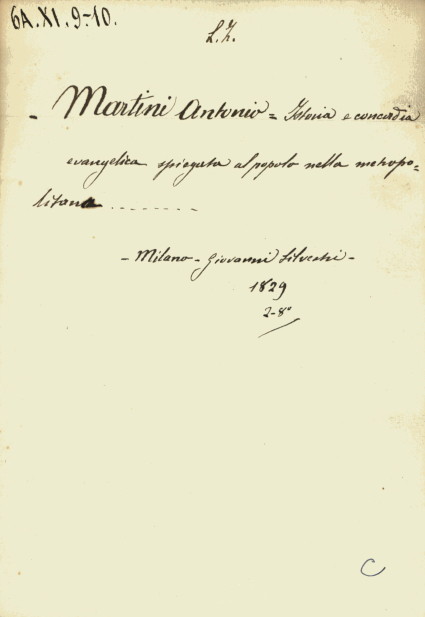 6A.XI.9-10.
L.Z.
- Martini Antonio = Istoria e concordia
evangelica spiegata al popolo nella metropo=
litana ........
- Milano - Giovanni Silvestri -
1829
2-8°
C